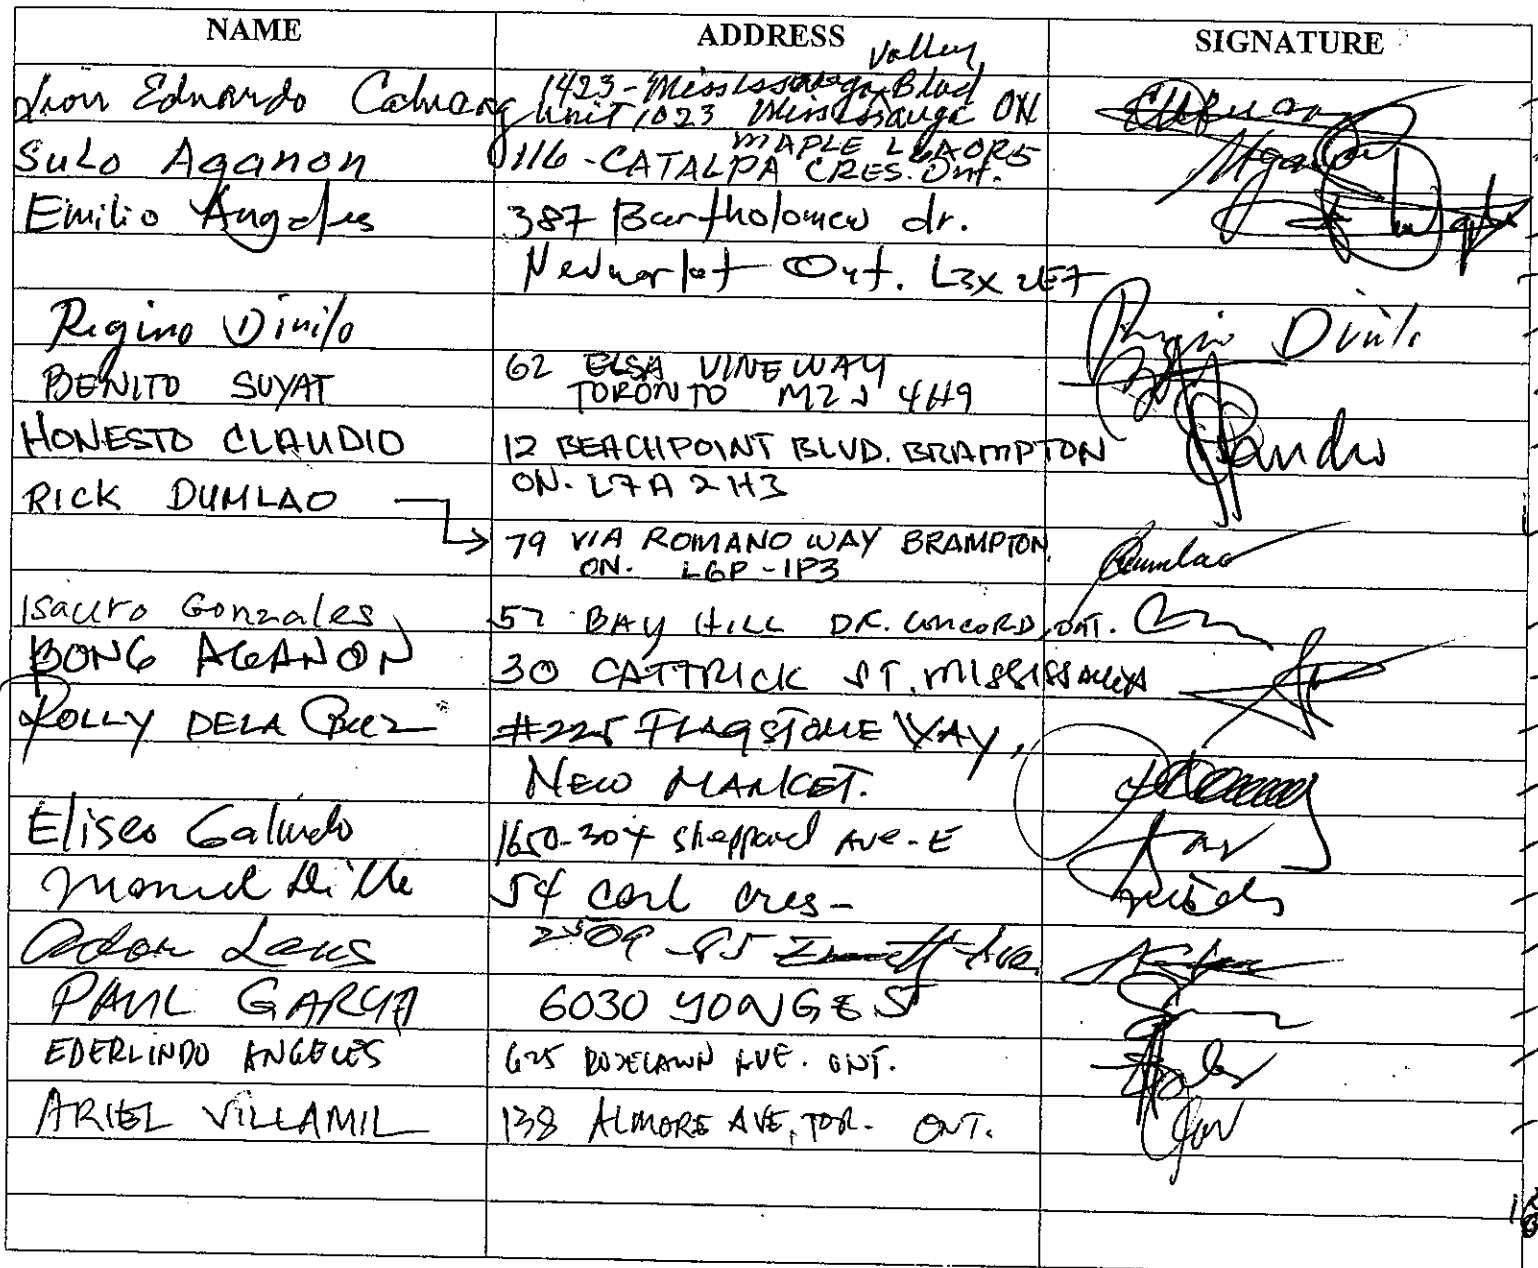 NAME ADDRESS SIGNATURE
Valley
Eduardo 1423-Mississauga Blvd
Unit 1023 Mississauga ON
MAPLE
Sulo Aganon 116-CATALPA CRES. Ont.
Emilio Angeles 387 Bartholomew dr.
Newmarket Ont. L3X 2E7
Regino Dinilo Regino Dinilo
62 ELSA VINEWAY
BENITO SUYAT TORONTO M2J 4H9
HONESTO CLAUDIO 12 BEACHPOINT BLVD. BRAMPTON
ON. L7A 2H3
RICK DUMLAO
79 VIA ROMANO WAY BRAMPTON
ON. L6P-1P3 Dumlao
Isauro Gonzales 57 BAY HILL DR. CONCORD, ONT.
BONG AGANON 30 CATTRICK ST. MISSISSAUGA
ROLLY DELA CRUZ #225 FLAGSTONE WAY,
NEW MARKET.
Eliseo Galindo 1650-304 Sheppard Ave-E
Manuel 54 Carl Cres-
2509 -85 Emmett Ave.
PAUL GARCIA 6030 YONGE ST
EDERLINDO ANGELES 625 ROSELAWN AVE. ONT.
ARIEL VILLAMIL 138 ALMORE AVE, TOR. ONT.